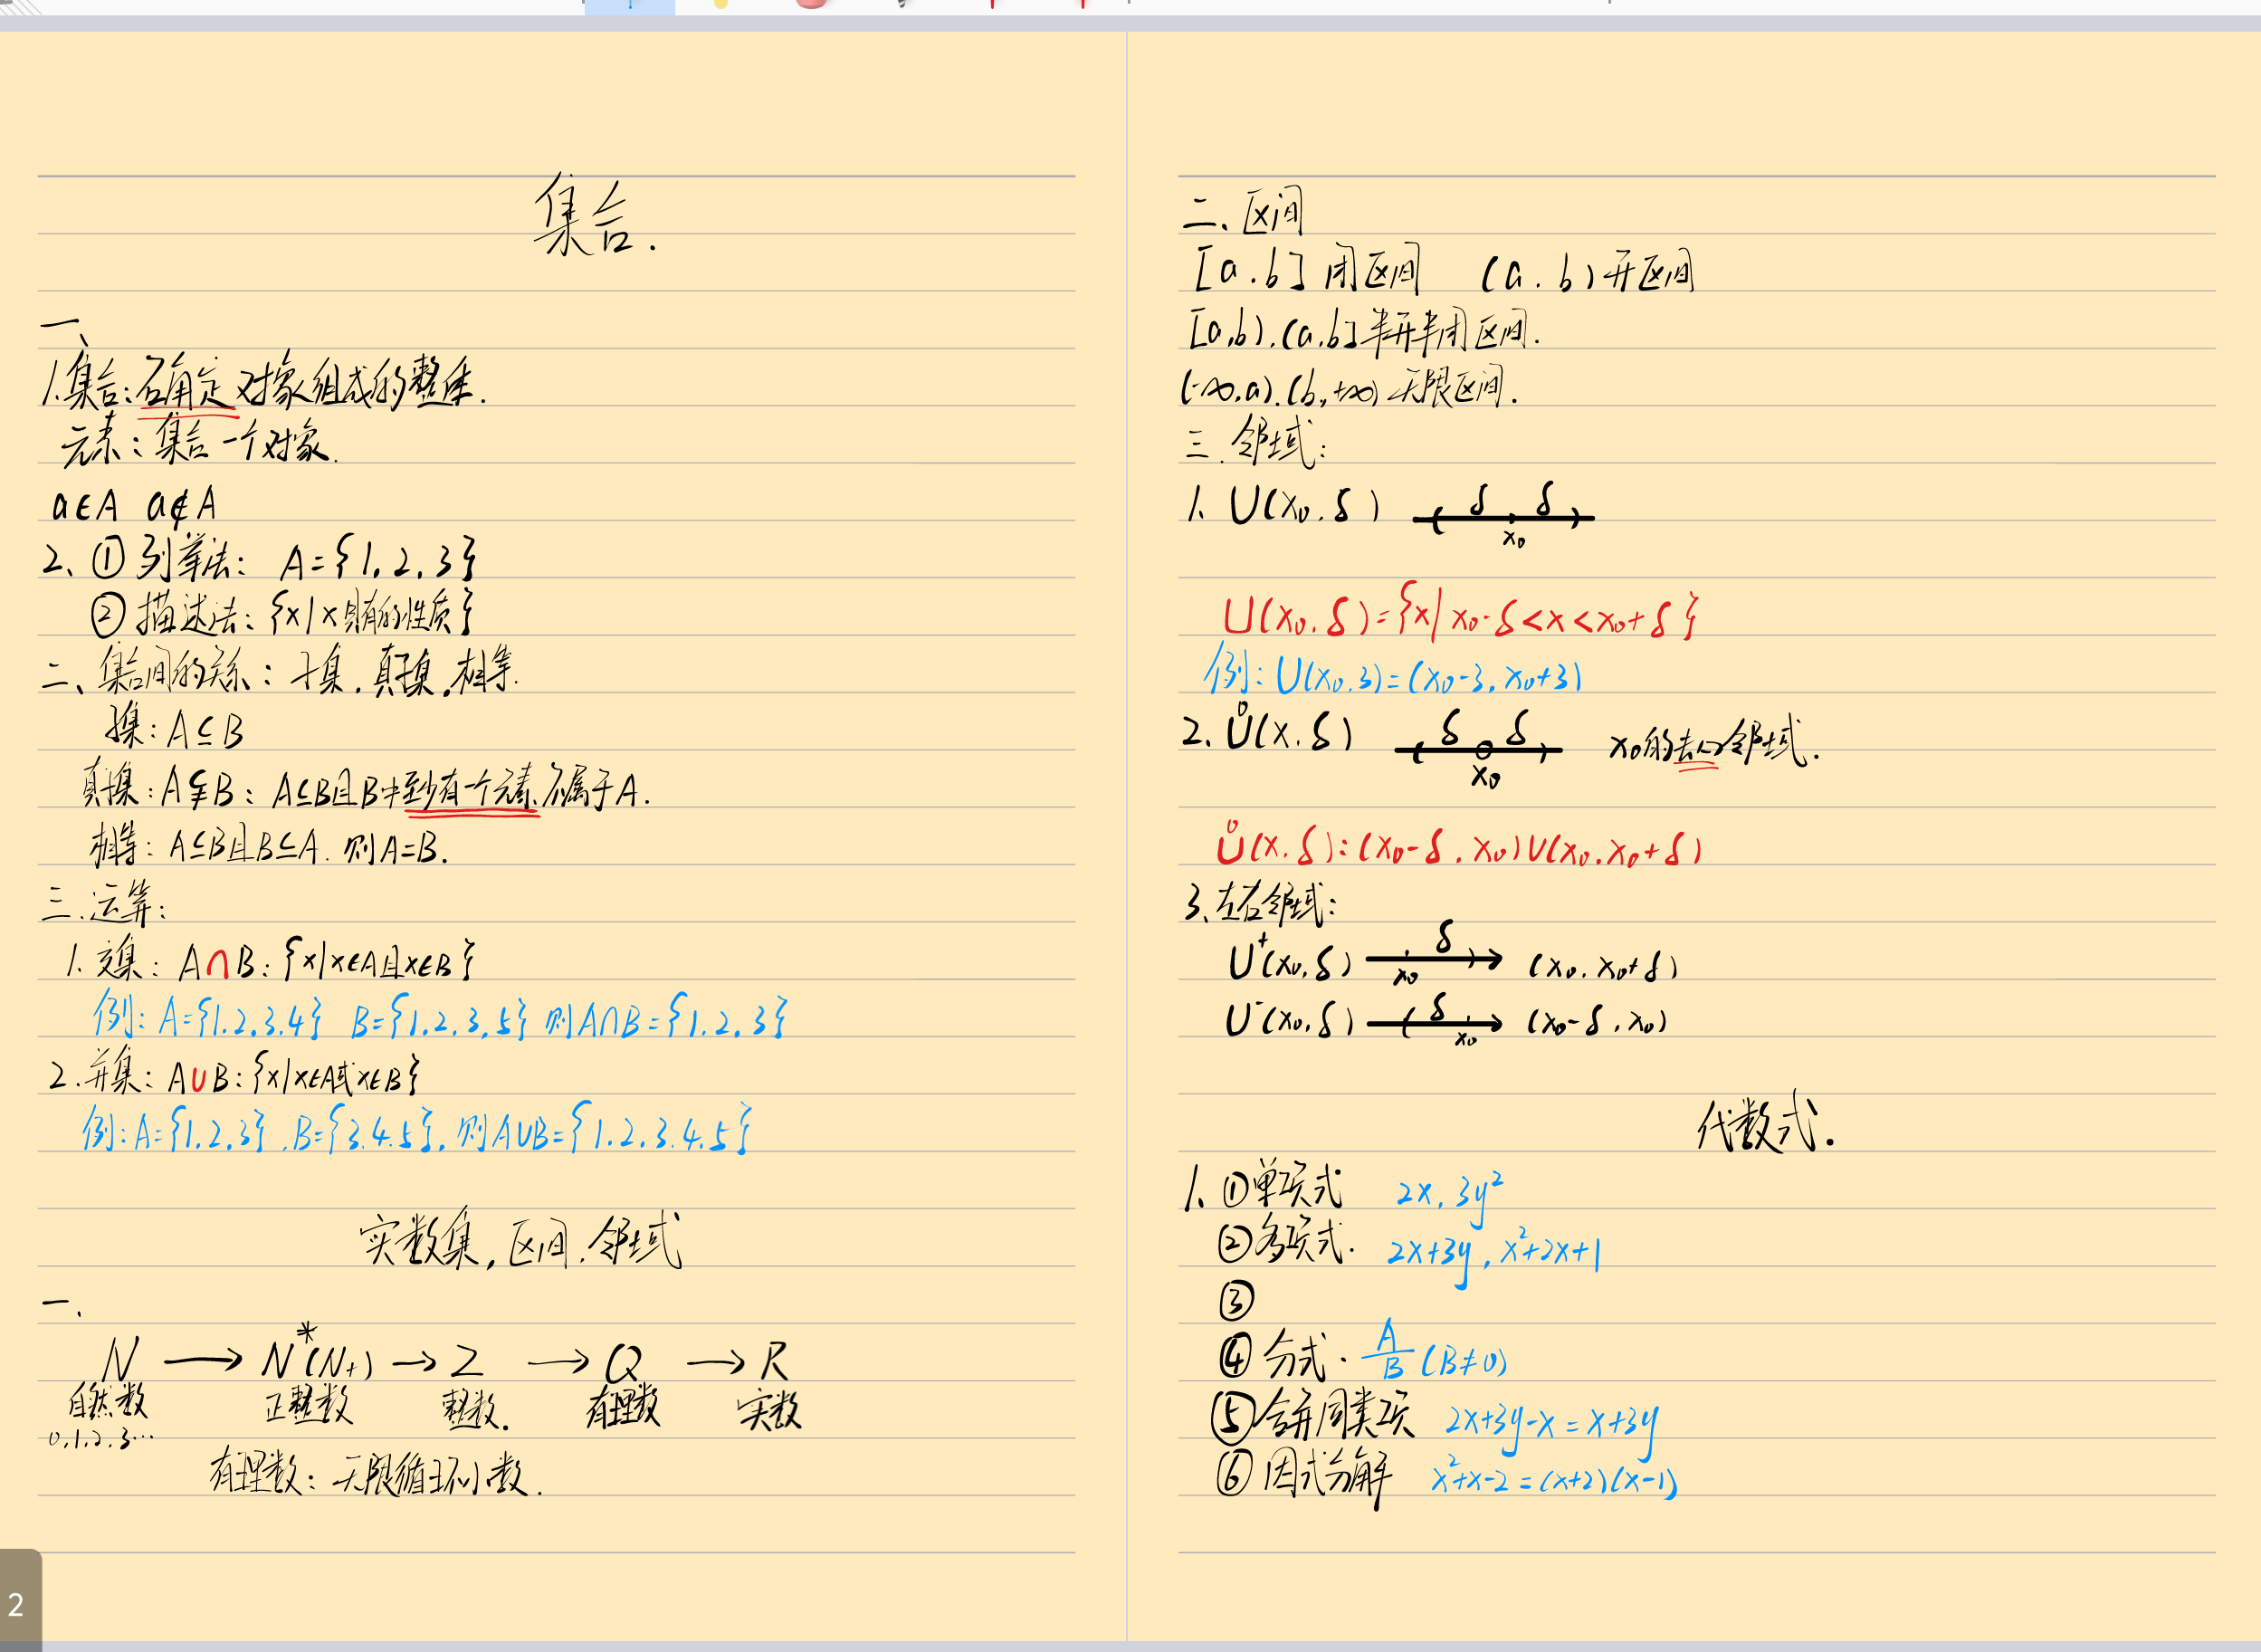 集合.
一、
1.集合:确定对象组成的整体.
元素:集合一个对象.
a∈A a∉A
2、①列举法: A={1.2.3}
②描述法:{x|x具有的性质}
二、集合间的关系:子集.真子集.相等.
子集:A⊆B
真子集:A⫋B:A⊆B且B中至少有一个元素不属于A.
相等:A⊆B且B⊆A.则A=B.
三.运算:
1.交集:A∩B:{x|x∈A且x∈B}
例:A={1.2.3.4} B={1.2.3.5} 则A∩B={1.2.3}
2.并集:A∪B:{x|x∈A或x∈B}
例:A={1.2.3}.B={3.4.5}.则A∪B={1.2.3.4.5}
实数集,区间.邻域
一.
N → N*(N+) → Z → Q → R
自然数 正整数 整数. 有理数 实数
0.1.2.3…
有理数:无限循环小数.
二、区间
[a.b]闭区间 (a.b)开区间
[a,b).(a,b]半开半闭区间.
(-∞,a).(b,+∞)无限区间.
三.邻域:
1. U(x₀.δ) ( δ δ )
x₀
U(x₀.δ)={x|x₀-δ<x<x₀+δ}
例:U(x₀.3)=(x₀-3,x₀+3)
2.Ů(x.δ) ( δ δ ) x₀的去心邻域.
x₀
Ů(x.δ):(x₀-δ.x₀)∪(x₀.x₀+δ)
3、左右邻域:
U⁺(x₀,δ) x₀ δ ) (x₀.x₀+δ)
U⁻(x₀,δ) ( δ x₀ (x₀-δ.x₀)
代数式.
1、①单项式 2x.3y²
②多项式. 2x+3y,x²+2x+1
③
④分式. A/B (B≠0)
⑤合并同类项 2x+3y-x=x+3y
⑥因式分解 x²+x-2=(x+2)(x-1)
2